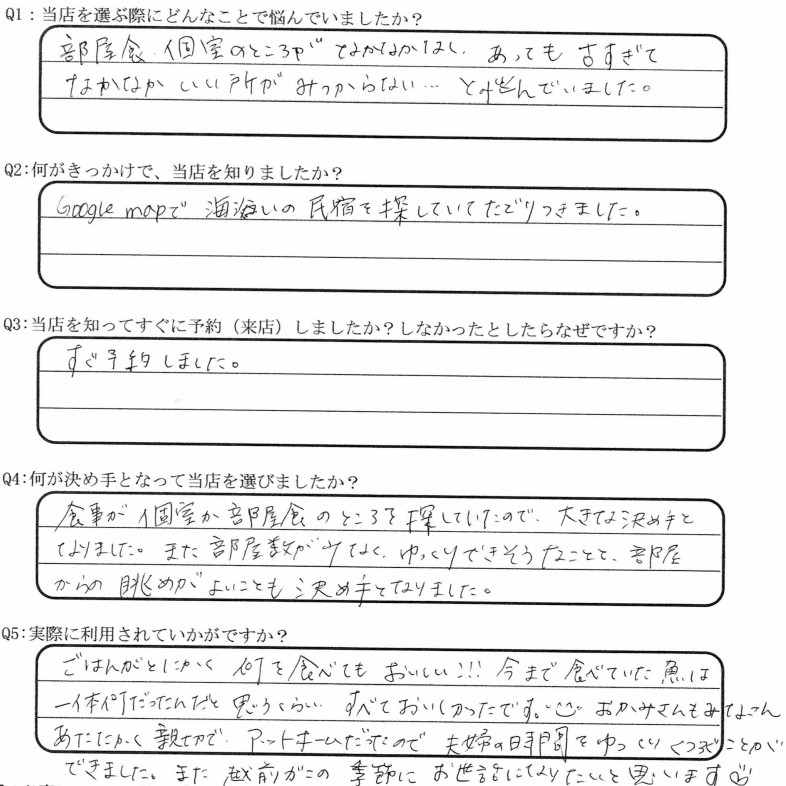 Q1：当店を選ぶ際にどんなことで悩んでいましたか？
部屋食、個室のところが なかなかなし、あっても 古すぎて
なかなか いい所が みつからない… と悩んでいました。
Q2：何がきっかけで、当店を知りましたか？
Google mapで 海沿いの 民宿を探していて たどりつきました。
Q3：当店を知ってすぐに予約（来店）しましたか？しなかったとしたらなぜですか？
すぐ予約しました。
Q4：何が決め手となって当店を選びましたか？
食事が 個室か 部屋食のところを探していたので、大きな決め手と
なりました。また 部屋数が少なく、ゆっくりできそうなことと、部屋
からの 眺めがよいことも 決め手となりました。
Q5：実際に利用されていかがですか？
ごはんがとにかく 何を食べても おいしい!!! 今まで 食べていた魚は
一体何だったんだと 思うくらい すべておいしかったです。おかみさんもみなさん
あたたかく 親切で、アットホームだったので 夫婦の時間をゆっくりくつろぐことが
できました。また 越前がにの 季節に お世話になりたいと思います